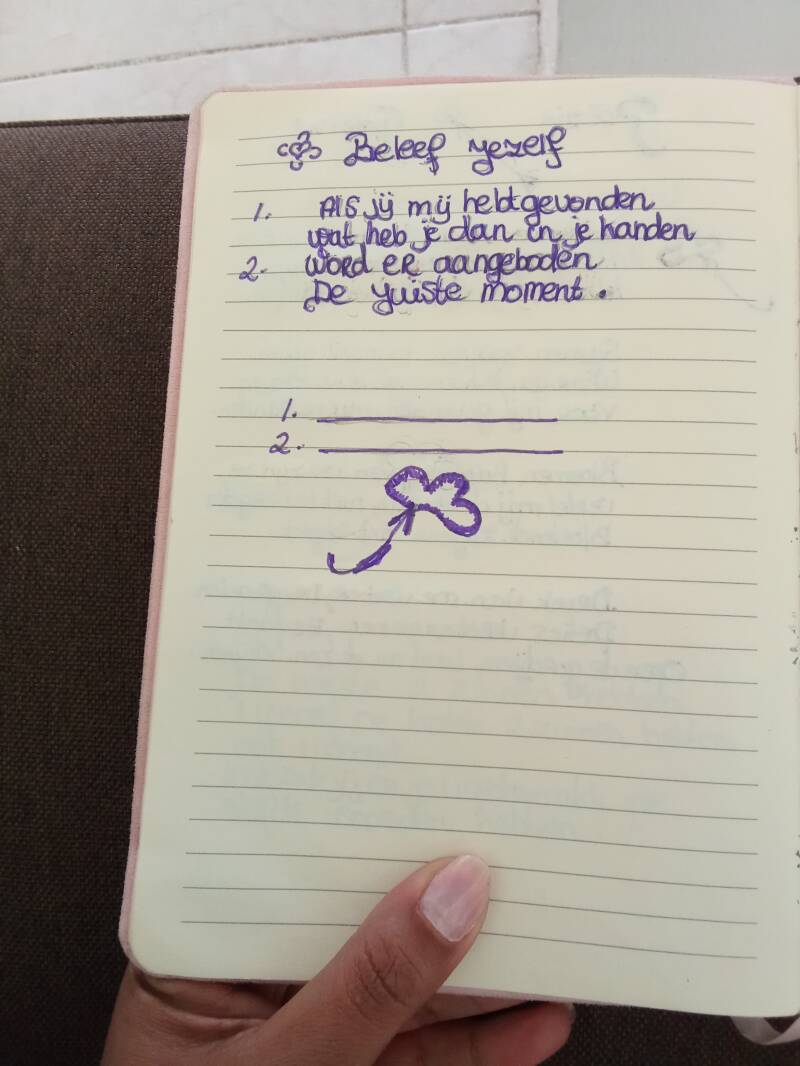 Beleef yezelf
1. Als jij mij hebt gevonden
wat heb je dan in je handen
2. word er aangeboden
De yuiste moment.
1.
2.